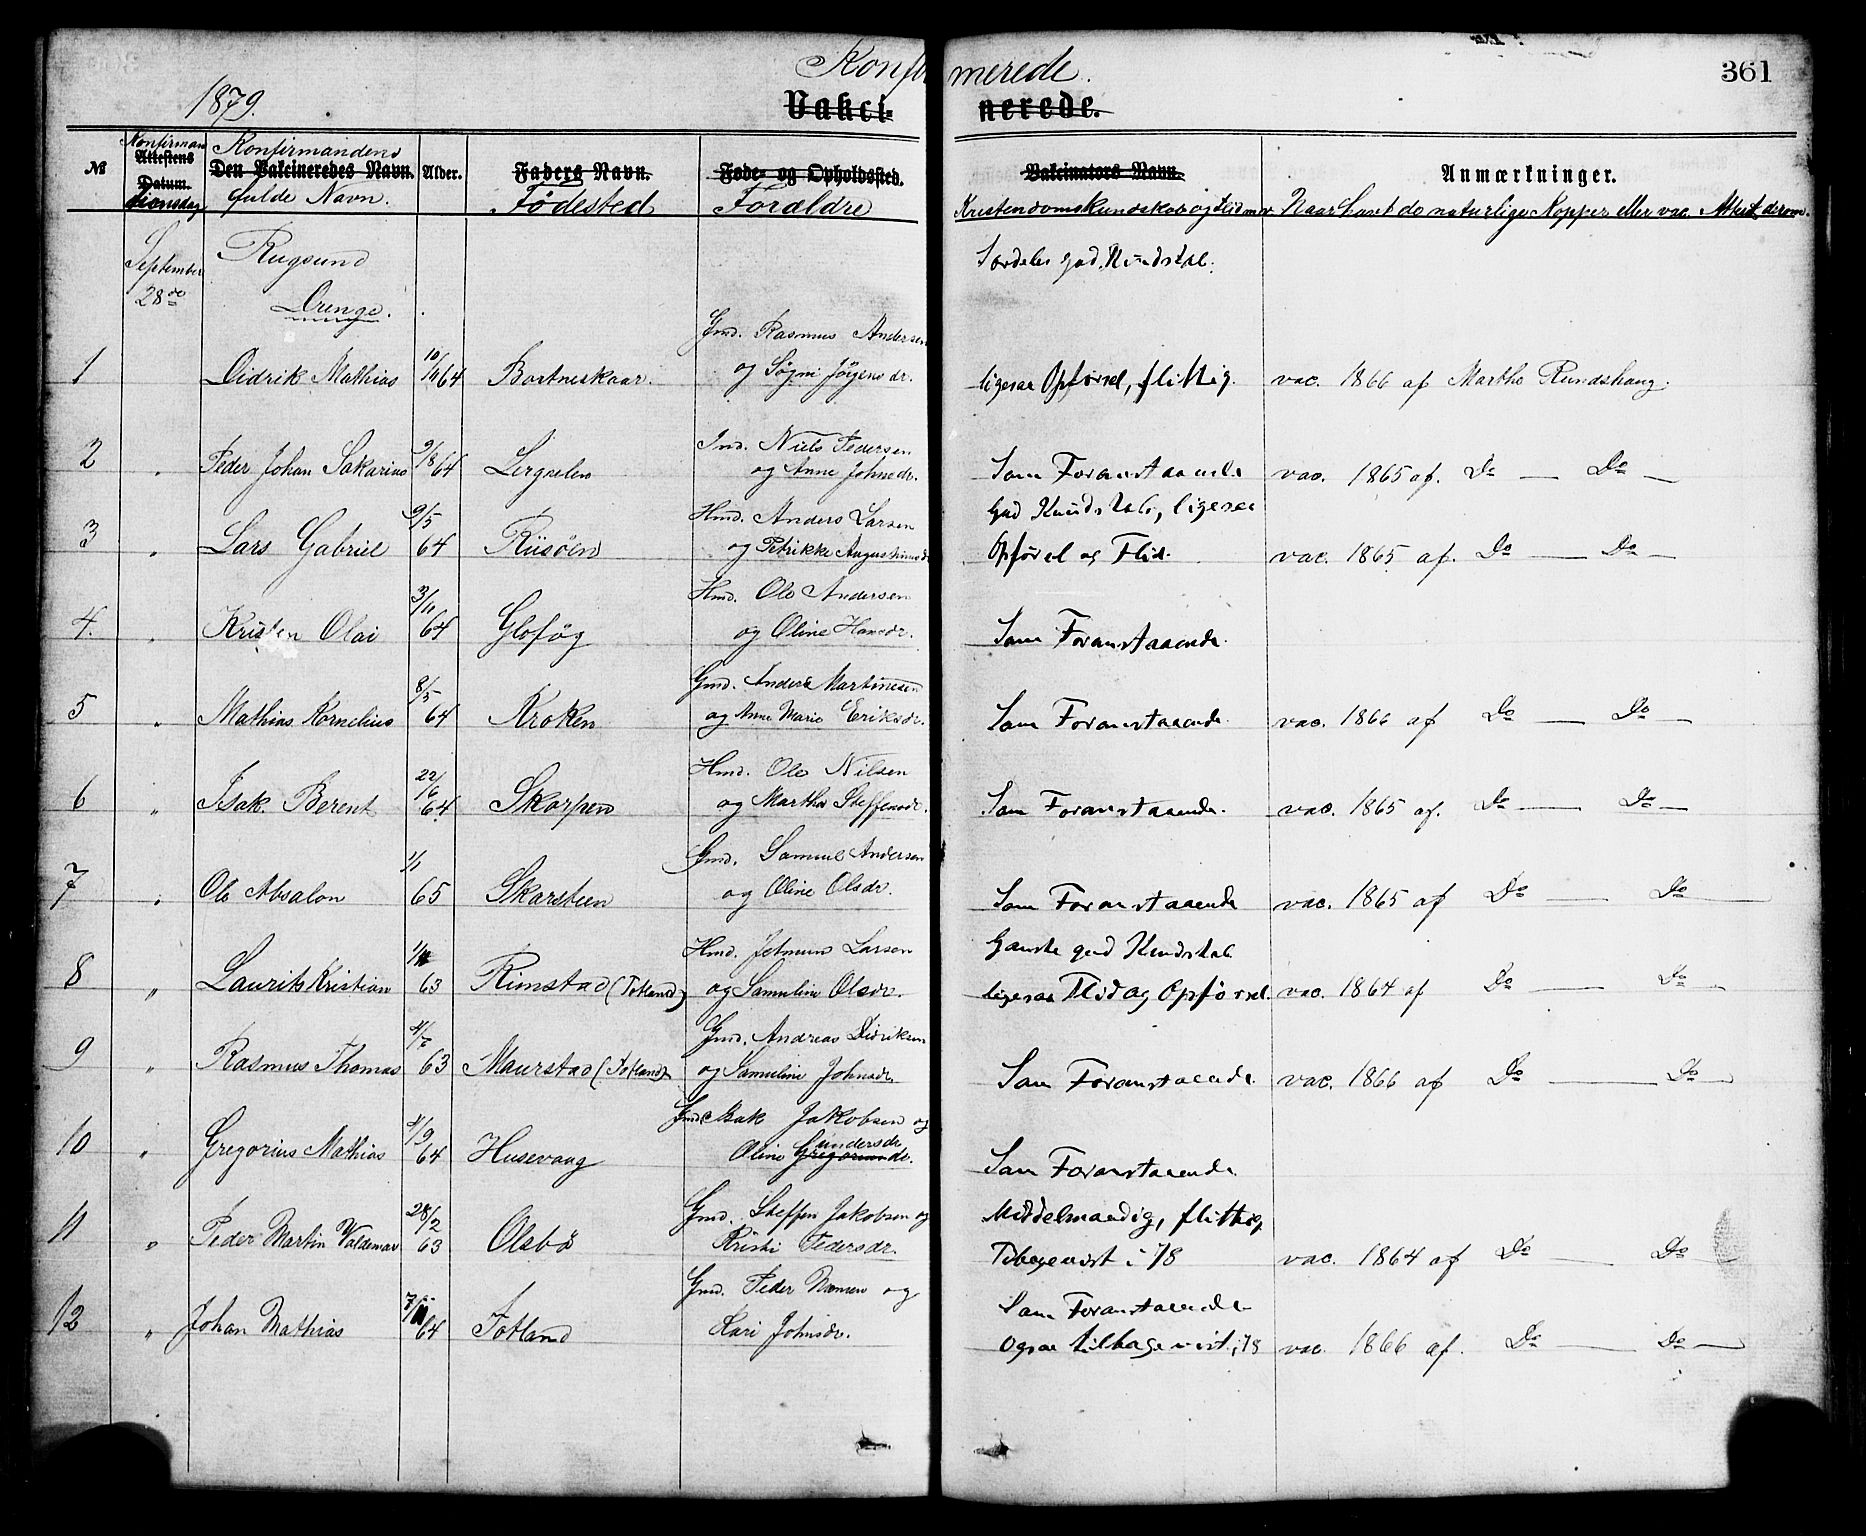 Konfir merede.
361
1879.
Vakci- nerede.
№ Konfirman Attestens Datum. tionsdag Konfirmandens Den Vakcineredes Navn. fulde Navn. Alder. Faders Navn. Fødested Føde- og Opholdssted. Forældre Vakcinators Navn. Anmærkninger.
Naar havt de naturlige Kopper eller vac. Attest derom.
September 28de Rugsund
Drenge.
Særdeles god Kundskab.
Gmd. Rasmus Andersen
1 Didrik Mathias 10/11 64 Bortneskaar. og Søgni Jørgensdr. ligesaa Opførsel, flittig. vac. 1866 af Marthe Rundshaug.
Ind. Niels Pedersen
2 " Peder Johan Sakarias 9/8 64 og Anne Johnsdr. Som Foranstaaende vac. 1865 af. Do — Do —
Hmd. Anders Larsen God Kundskab, ligesaa
3 " Lars Gabriel 9/5 64 Riisøen og Petrikke Augustinusdr. Opførsel og Flid. vac. 1865 af. Do — Do —
Hmd. Ole Andersen
4. " Kristen Olai 3/11 64 Gloføg og Oline Hansdr. Som Foranstaaende.
Gmd. Anders Martinesen
5 " Mathias Kornelius 8/5 64 Kroken og Anne Marie Eriksdr. Som Foranstaaende. vac. 1866 af Do — Do —
Hmd. Ole Nilsen
6 " Isak Berent 22/6 64 Skorpen og Marthe Steffensdr. Som Foranstaaende. vac. 1865 af. Do — Do —
Gmd. Samuel Andersen
7 " Ole Absalon 1/1 65 Skarsteen og Oline Olsdr. Som Foranstaaende vac. 1865 af Do — Do —
Hmd. Jetmun Larsen Ganske god Kundskab
8 " Laurits Kristian 63 Rimstad (Totland) og Samuline Olsdr. ligesaa Flid og Opførsel. vac. 1864 af Do — Do —
Gmd. Andreas Didriksen
9 " Rasmus Thomas 63 Maurstad (Totland) og Samuline Johnsdr. Som Foranstaaende vac. 1866 af Do — Do —
Gmd. Isak Jakobsen og
10 " Gregorius Mathias 4/9 64 Husevaag Oline Gregoriusdr. Gundersdr. Som Foranstaaende
Gmd. Steffen Jakobsen og Middelmaadig, flittig,
11 " Peder Martin Valdemar 28/2 63 Olsbø Kristi Pedersdr. Tilbagevist i 78 vac. 1864 af Do — Do —
Gmd. Peder og Som Foranstaaende
12 " Johan Mathias 64 Totland Kari Johnsdr. Ogsaa tilbagevist i 78 vac. 1866 af. Do — Do —